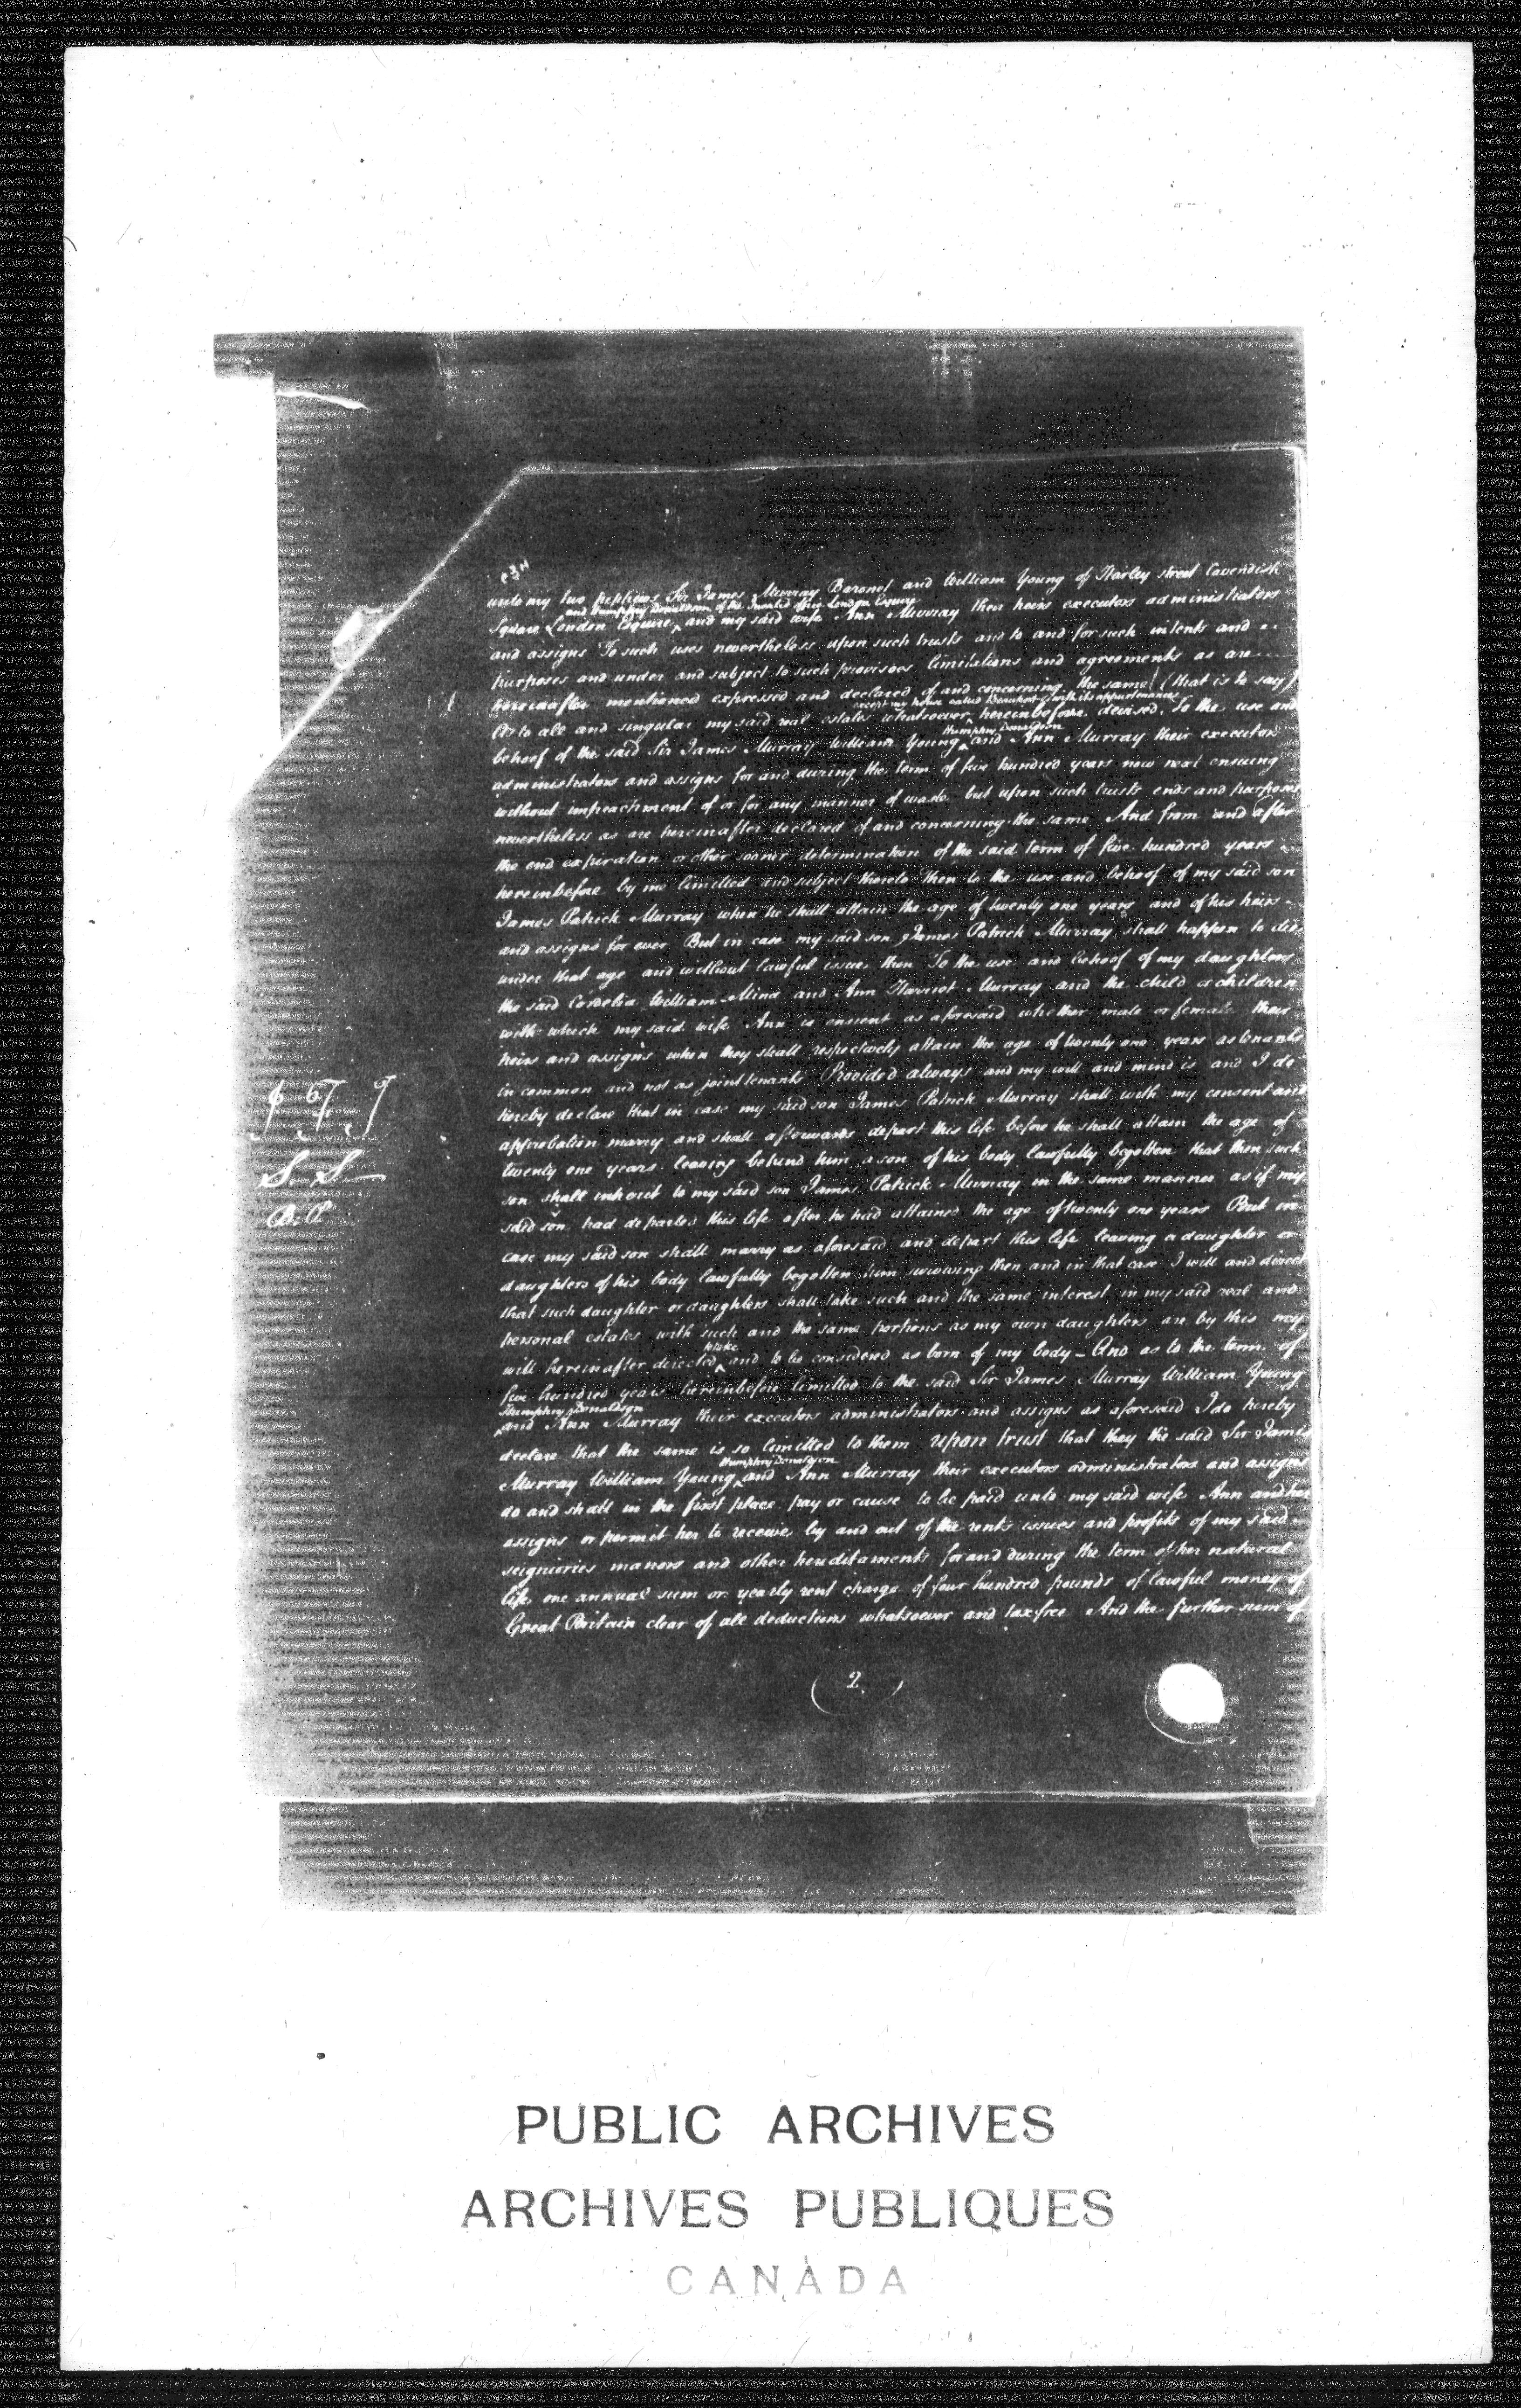 unto my two nephews Sir James Murray Baronet and William Young of Harley street Cavendish
and Humphry Donaldson of the Invalid office London Esquire
Square London Esquire and my said wife Ann Murray their heirs executors administrators
and assigns To such uses nevertheless upon such trusts and to and for such intents and
purposes and under and subject to such provisoes limitations and agreements as are
hereinafter mentioned expressed and declared of and concerning the same (that is to say)
except my house called Beauport with its appurtenances
As to all and singular my said real estates whatsoever hereinbefore devised. To the use and
Humphry Donaldson
behoof of the said Sir James Murray William Young and Ann Murray their executors
administrators and assigns for and during the term of five hundred years now next ensuing
without impeachment of or for any manner of waste but upon such trusts ends and purposes
nevertheless as are hereinafter declared of and concerning the same And from and after
the end expiration or other sooner determination of the said term of five hundred years
hereinbefore by me limitted and subject thereto Then to the use and behoof of my said son
James Patrick Murray when he shall attain the age of twenty one years and of his heirs
and assigns for ever But in case my said son James Patrick Murray shall happen to die
under that age and without lawful issue then To the use and behoof of my daughters
the said Cordelia William-Mina and Ann Harriot Murray and the child or children
with which my said wife Ann is ensient as aforesaid whether male or female their
heirs and assigns when they shall respectively attain the age of twenty one years as tenants
in common and not as joint tenants Provided always and my will and mind is and I do
hereby declare that in case my said son James Patrick Murray shall with my consent and
approbation marry and shall afterwards depart this life before he shall attain the age of
twenty one years leaving behind him a son of his body lawfully begotten that then such
son shall inherit to my said son James Patrick Murray in the same manner as if my
said son had departed this life after he had attained the age of twenty one years But in
case my said son shall marry as aforesaid and depart this life leaving a daughter or
daughters of his body lawfully begotten him surviving then and in that case I will and direct
that such daughter or daughters shall take such and the same interest in my said real and
personal estates with such and the same portions as my own daughters are by this my
to take
will hereinafter directed and to be considered as born of my body - And as to the term of
five hundred years hereinbefore limitted to the said Sir James Murray William Young
Humphry Donaldson
and Ann Murray their executors administrators and assigns as aforesaid I do hereby
declare that the same is so limitted to them upon trust that they the said Sir James
Humphry Donaldson
Murray William Young and Ann Murray their executors administrators and assigns
do and shall in the first place pay or cause to be paid unto my said wife Ann and her
assigns or permit her to receive by and out of the rents issues and profits of my said
seigniories manors and other hereditaments for and during the term of her natural
life one annual sum or yearly rent charge of four hundred pounds of lawful money of
Great Britain clear of all deductions whatsoever and tax free And the further sum of
J F J
S. S
B. P.
2.
PUBLIC ARCHIVES
ARCHIVES PUBLIQUES
CANADA